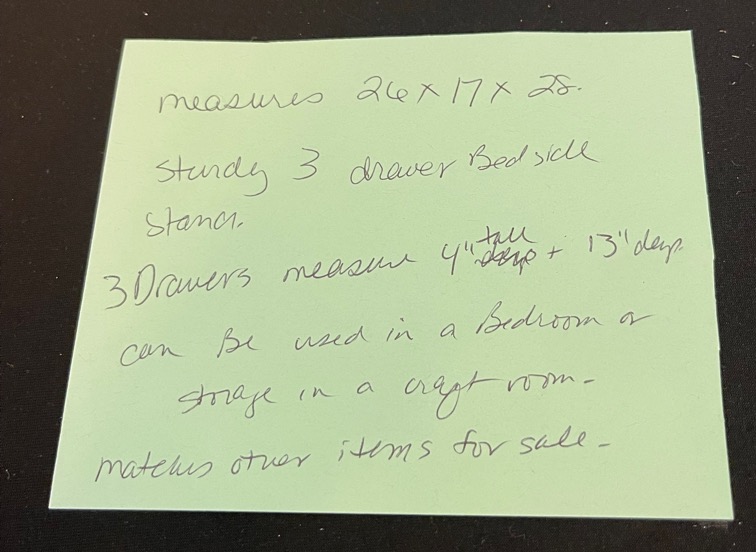 measures 26 x 17 x 28.
Sturdy 3 drawer Bedside
Stand.
3 Drawers measure 4" tall + 13" deep.
can Be used in a Bedroom or
storage in a craft room -
matches other items for sale -